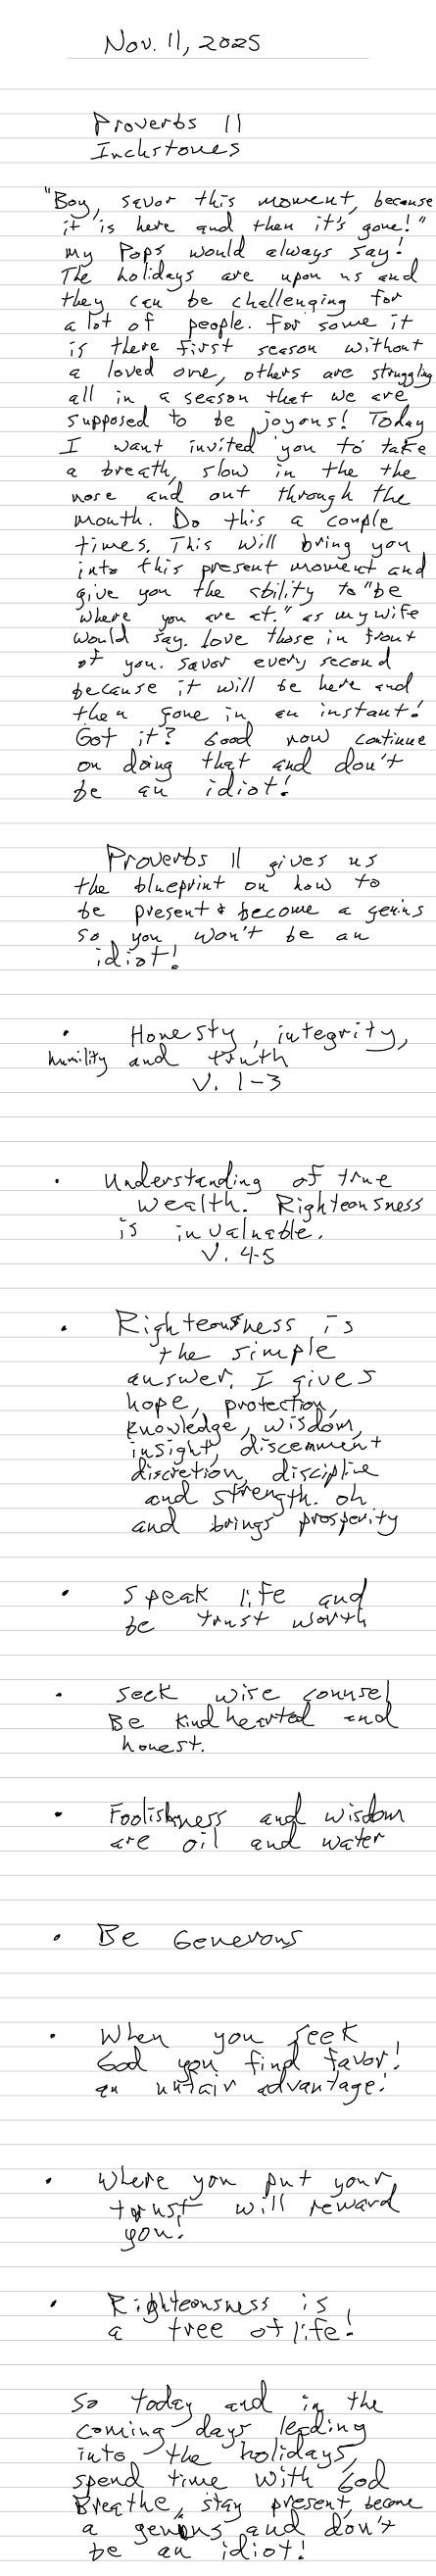 Nov. 11, 2025
Proverbs 11
Inchstones
"Boy, savor this moment, because
it is here and then it's gone!"
my Pops would always say!
The holidays are upon us and
they can be challenging for
a lot of people. For some it
is there first season without
a loved one, others are struggling
all in a season that we are
supposed to be joyous! Today
I want invited you to take
a breath, slow in the the
nose and out through the
mouth. Do this a couple
times. This will bring you
into this present moment and
give you the ability to "be
where you are at." as my wife
would say. Love those in front
of you. Savor every second
because it will be here and
then gone in an instant!
Got it? Good now continue
on doing that and don't
be an idiot!
Proverbs 11 gives us
the blueprint on how to
be present & become a genius
so you won't be an
idiot!
• Honesty, integrity,
humility and truth
V. 1-3
• Understanding of true
wealth. Righteousness
is invaluable.
V. 4-5
• Righteousness is
the simple
answer. I gives
hope, protection,
knowledge, wisdom,
insight, discernment
discretion, discipline
and strength. oh
and brings prosperity
• Speak life and
be trust worth
• Seek wise counsel
Be kind hearted and
honest.
• Foolishness and wisdom
are oil and water
• Be Generous
• When you seek
God you find favor!
an unfair advantage!
• Where you put your
trust will reward
you!
• Righteousness is
a tree of life!
So today and in the
coming days leading
into the holidays,
spend time with God
Breathe, stay present, become
a genius and don't
be an idiot!